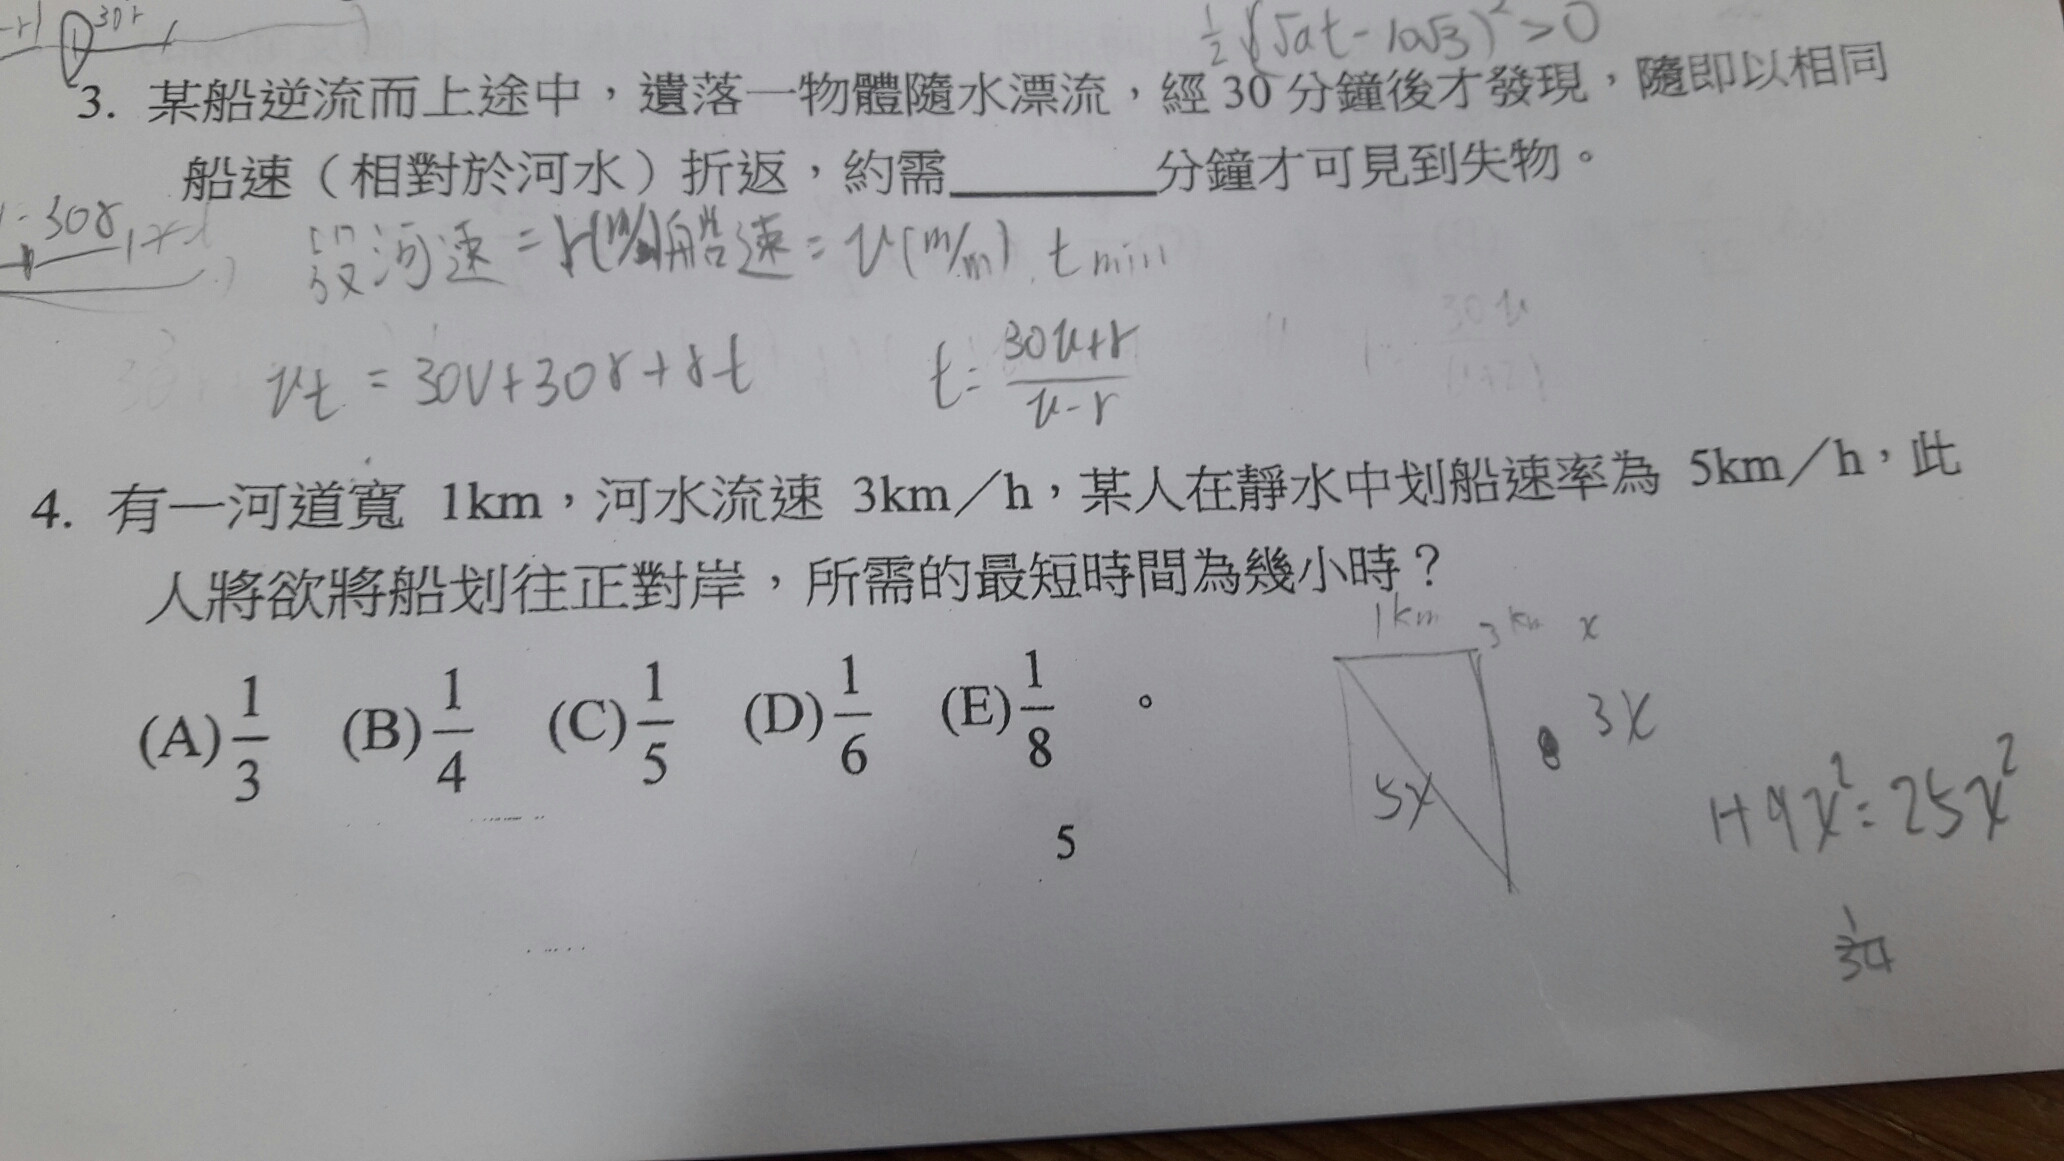 30r
½(√at-10√3)²>0
3. 某船逆流而上途中，遺落一物體隨水漂流，經30分鐘後才發現，隨即以相同
船速（相對於河水）折返，約需________分鐘才可見到失物。
30r
設河速=r(m/m)船速=v(m/m) t min
vt = 30v+30r+rt
t=30v+r/v-r
4. 有一河道寬 1km，河水流速 3km／h，某人在靜水中划船速率為 5km／h，此
人將欲將船划往正對岸，所需的最短時間為幾小時？
1km 3km x
(A)1/3 (B)1/4 (C)1/5 (D)1/6 (E)1/8 。
3x
5x
1+9x²=25x²
5
1/34